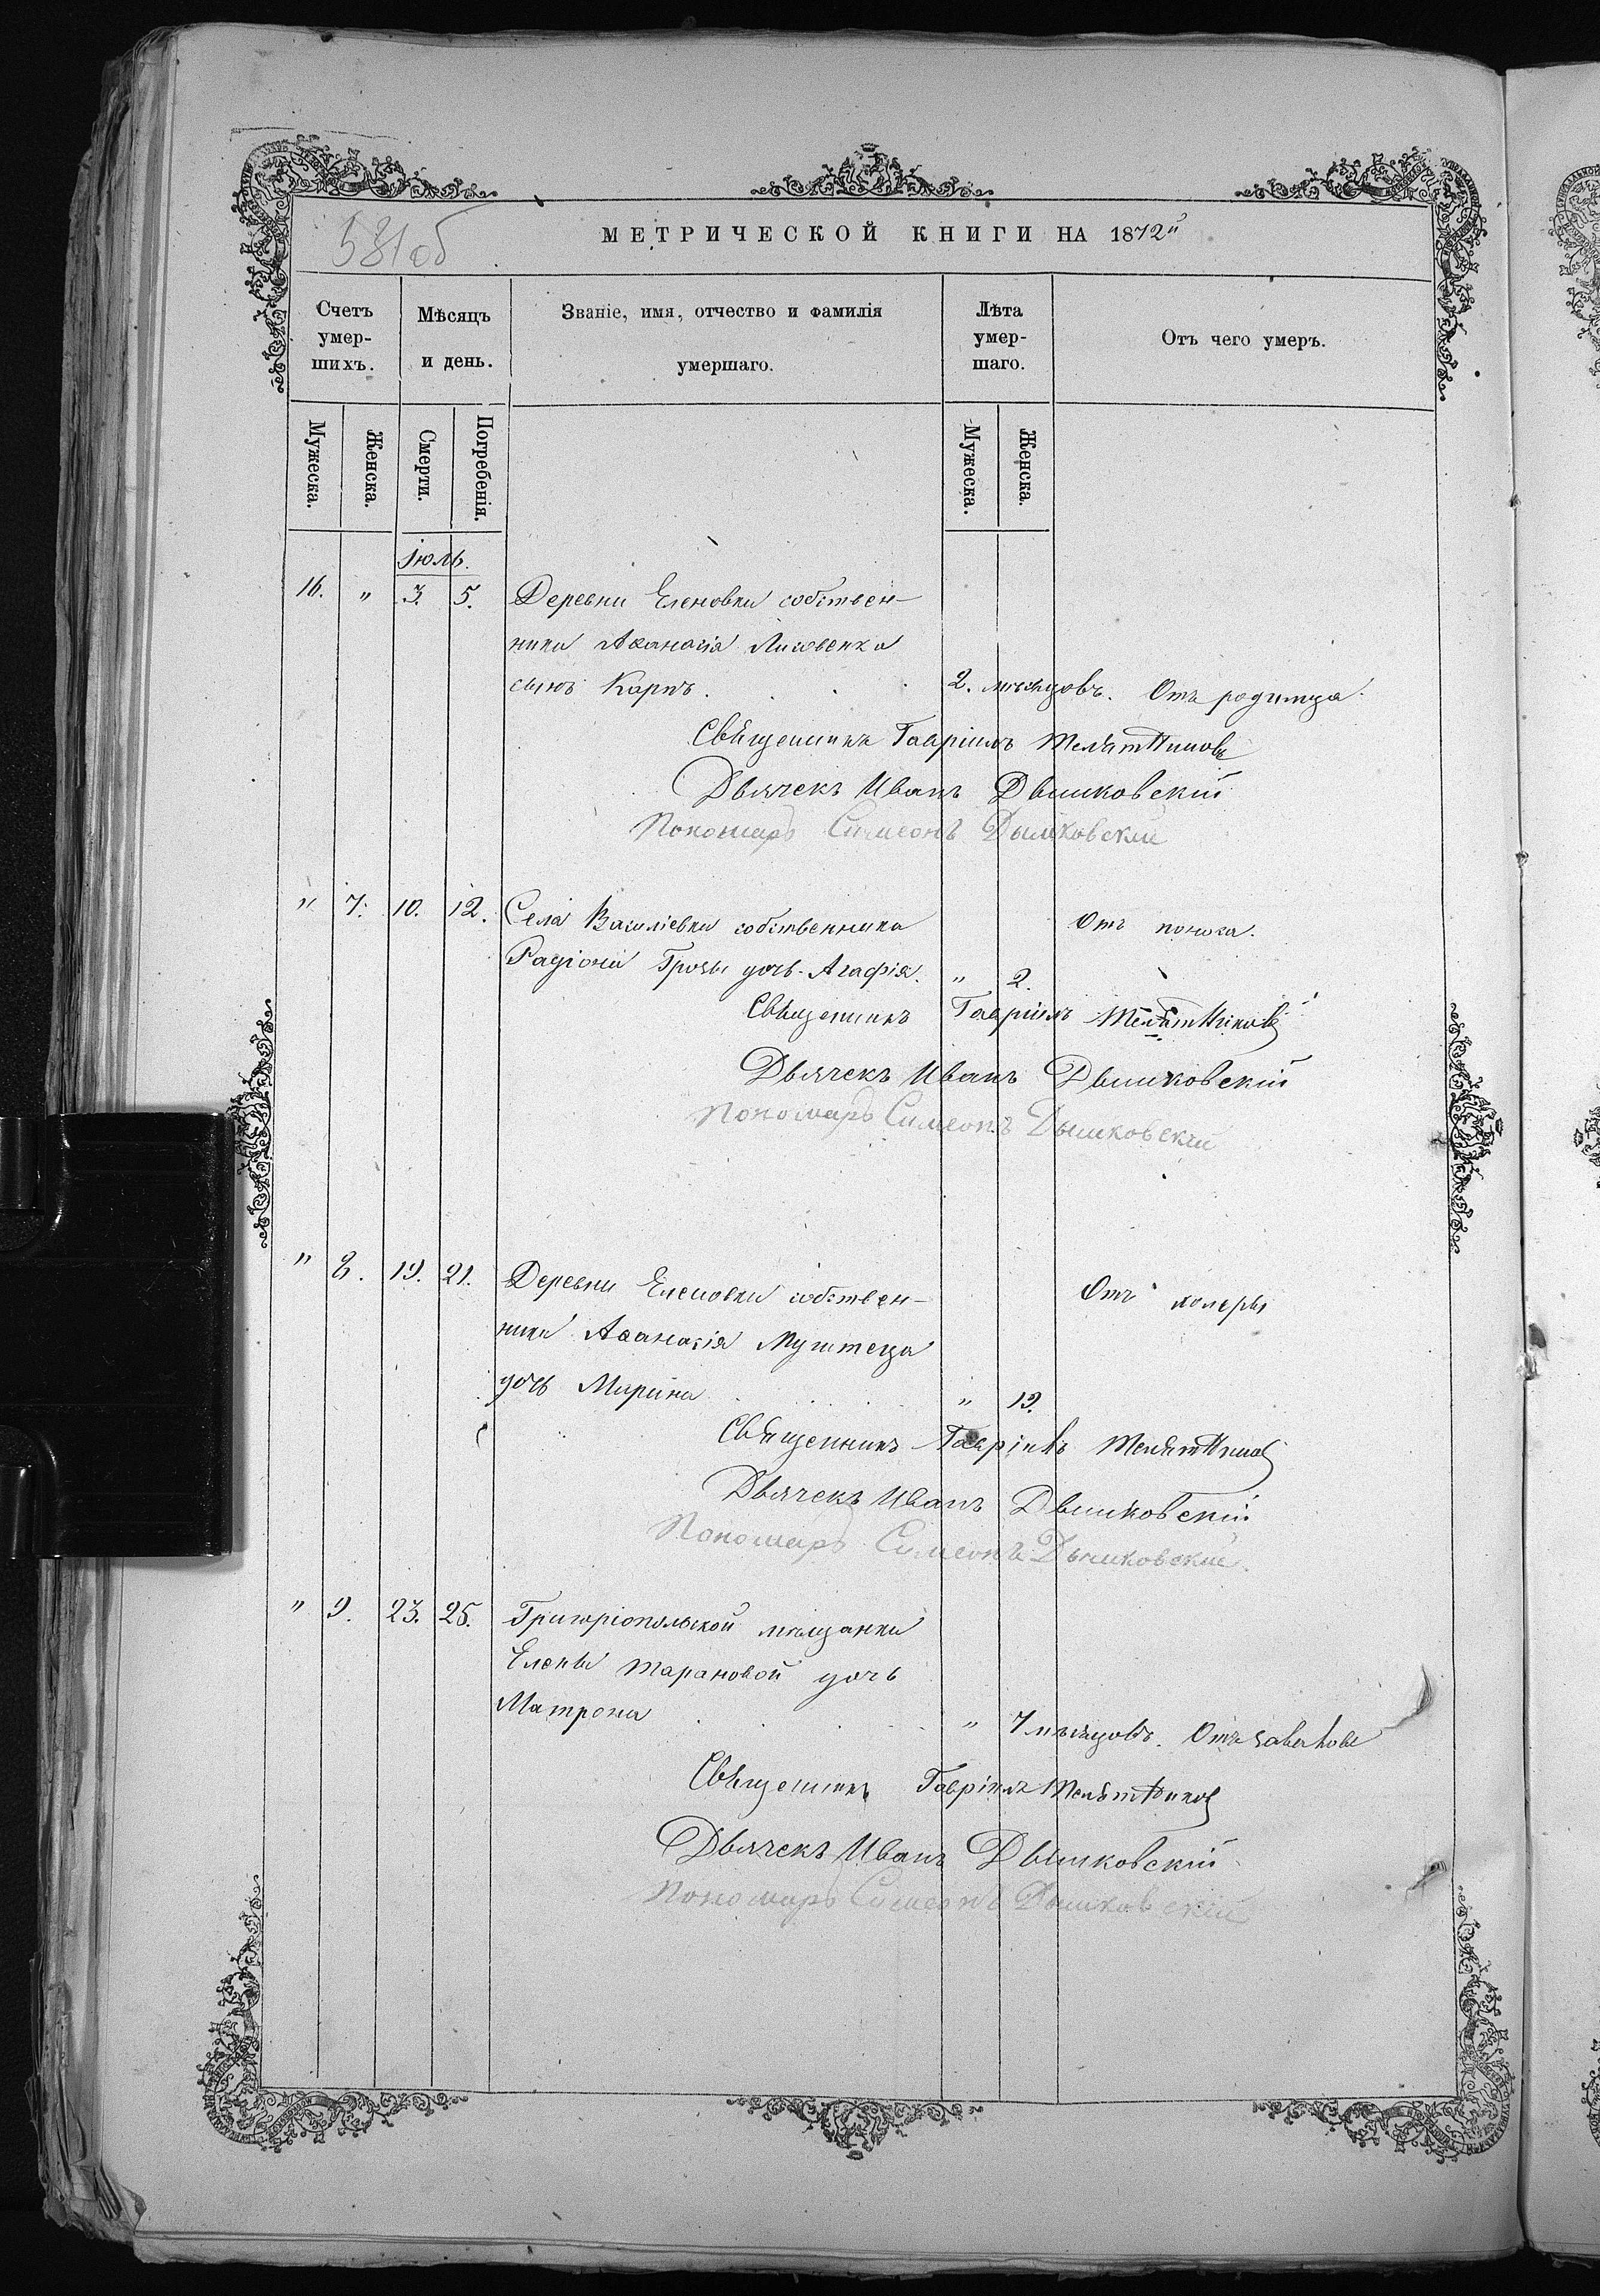 531об
МЕТРИЧЕСКОЙ КНИГИ НА 1872й
Счетъ умер-шихъ.
Мѣсяцъ и день.
Званіе, имя, отчество и фамилія умершаго.
Лѣта умер-шаго.
Отъ чего умеръ.
Мужеска. Женска. Смерти. Погребенія. Мужеска. Женска.
Іюль.
16. " 3. 5. Деревни Еленовки собствен-
ника Аѳанасія Лисовенка
сынъ Карпъ. 2. мѣсяцовъ. Отъ родимца.
Священникъ Гавріилъ Телятниковъ
Дьячекъ Иванъ Дымковскій
Пономарь Симеонъ Дымковскій
" 7. 10. 12. Села Василіевки собственника Отъ поноса.
Радіона Грозы дочь Агафія. " 2.
Священникъ Гавріилъ Телятниковъ
Дьячекъ Иванъ Дымковскій
Пономарь Симеонъ Дымковскій
" 8. 19. 21. Деревни Еленовки собствен- Отъ холеры
ника Аѳанасія Муштеца
дочь Марина " 19.
Священникъ Гавріилъ Телятниковъ
Дьячекъ Иванъ Дымковскій
Пономарь Симеонъ Дымковскій.
" 9. 23. 25. Григоріопольской мѣщанки
Елены Тарановой дочь
Матрона " 7 мѣсяцовъ. Отъ
Священникъ Гавріилъ Телятниковъ
Дьячекъ Иванъ Дымковскій
Пономарь Симеонъ Дымковскій